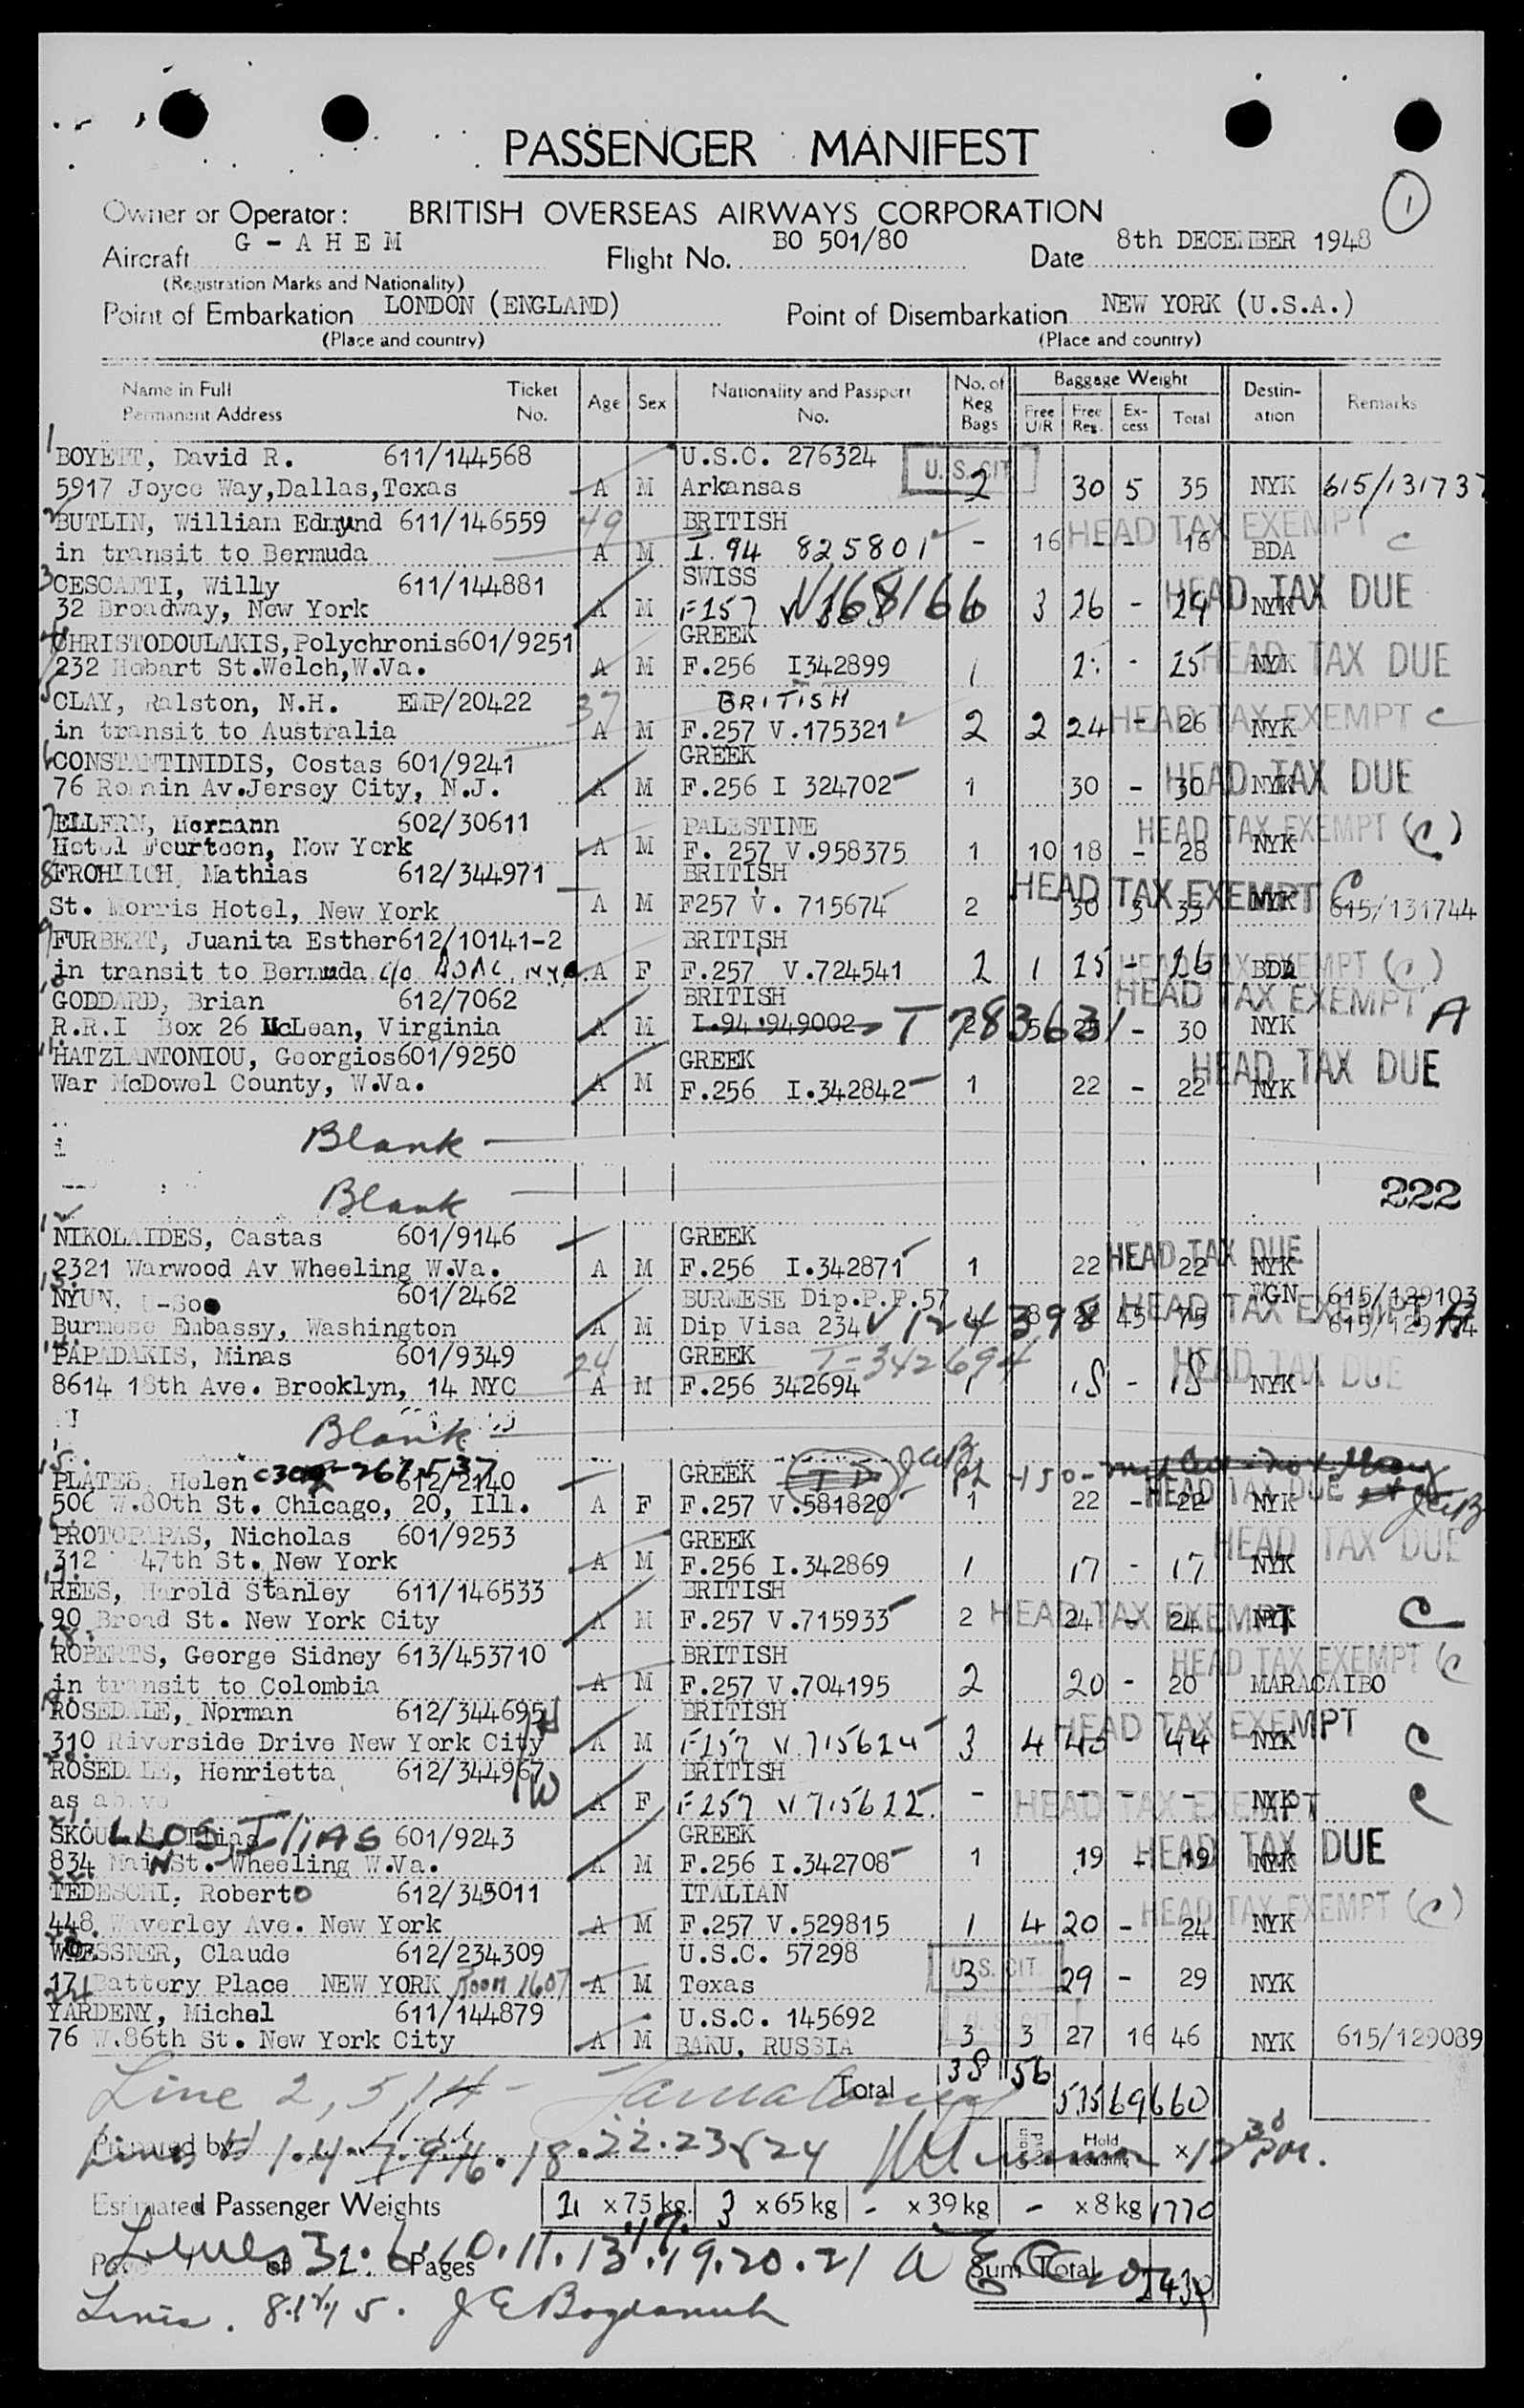 PASSENGER MANIFEST
1
Owner or Operator: BRITISH OVERSEAS AIRWAYS CORPORATION
Aircraft G - A H E M Flight No. BO 501/80 Date 8th DECEMBER 1948
(Registration Marks and Nationality)
Point of Embarkation LONDON (ENGLAND) Point of Disembarkation NEW YORK (U.S.A.)
(Place and country) (Place and country)
Name in Full Ticket Age Sex Nationality and Passport No. of Baggage Weight Destin- Remarks
Permanent Address No. No. Reg Bags Free U/R Free Reg. Ex-cess Total ation
1 BOYETT, David R. 611/144568 U.S.C. 276324 U.S. CIT
5917 Joyce Way, Dallas, Texas A M Arkansas 2 30 5 35 NYK 615/131737
2 BUTLIN, William Edmund 611/146559 49 BRITISH HEAD TAX EXEMPT
in transit to Bermuda A M I.94 825801 - 16 - - 16 BDA C
3 CESCATTI, Willy 611/144881 SWISS HEAD TAX DUE
32 Broadway, New York A M F157 V168166 3 26 - 29 NYK
4 CHRISTODOULAKIS, Polychronis 601/9251 GREEK HEAD TAX DUE
232 Hobart St. Welch, W.Va. A M F.256 I342899 1 - 25 NYK
5 CLAY, Ralston, N.H. EMP/20422 37 BRITISH HEAD TAX EXEMPT C
in transit to Australia A M F.257 V.175321 2 2 24 - 26 NYK
6 CONSTANTINIDIS, Costas 601/9241 GREEK HEAD TAX DUE
76 Av. Jersey City, N.J. A M F.256 I 324702 1 30 - 30 NYK
7 ELLERN, Hermann 602/30611 PALESTINE HEAD TAX EXEMPT (C)
Hotel Fourteen, New York A M F. 257 V.958375 1 10 18 - 28 NYK
8 FROHLICH, Mathias 612/344971 BRITISH HEAD TAX EXEMPT C
St. Morris Hotel, New York A M F257 V. 715674 2 30 3 33 NYK 615/131744
9 FURBERT, Juanita Esther 612/10141-2 BRITISH
in transit to Bermuda c/o BOAC NYC. A F F.257 V.724541 2 1 25 - 26 BDA HEAD TAX EXEMPT (C)
10 GODDARD, Brian 612/7062 BRITISH HEAD TAX EXEMPT
R.R.I Box 26 McLean, Virginia A M I.94.949002 T 783631 2 5 25 - 30 NYK A
11 HATZIANTONIOU, Georgios 601/9250 GREEK HEAD TAX DUE
War McDowel County, W.Va. A M F.256 I.342842 1 22 - 22 NYK
Blank
Blank
222
12 NIKOLAIDES, Castas 601/9146 GREEK HEAD TAX DUE
2321 Warwood Av Wheeling W.Va. A M F.256 I.342871 1 22 22 NYK
13 NYUN, U-Soe 601/2462 BURMESE Dip.P.P.57 WGN 615/129103
Burmese Embassy, Washington A M Dip Visa 234 V124398 8 22 45 75 HEAD TAX EXEMPT A
14 PAPADAKIS, Minas 601/9349 24 GREEK I-342694 HEAD TAX DUE
8614 18th Ave. Brooklyn, 14 NYC A M F.256 342694 1 18 - 18 NYK
Blank
15 PLATES, Helen 612/2140 GREEK HEAD TAX DUE
506 W.80th St. Chicago, 20, Ill. A F F.257 V.581820 1 22 - 22 NYK
PROTOPAPAS, Nicholas 601/9253 GREEK HEAD TAX DUE
312 47th St. New York A M F.256 I.342869 1 17 - 17 NYK
17 REES, Harold Stanley 611/146533 BRITISH
90 Broad St. New York City A M F.257 V.715933 2 24 - 24 NYK HEAD TAX EXEMPT C
18 ROBERTS, George Sidney 613/453710 BRITISH HEAD TAX EXEMPT (C
in transit to Colombia A M F.257 V.704195 2 20 - 20 MARACAIBO
19 ROSEDALE, Norman 612/344695 H BRITISH HEAD TAX EXEMPT
310 Riverside Drive New York City A M F257 V 715624 3 4 40 - 44 NYK C
20 ROSEDALE, Henrietta 612/344967 W BRITISH
as above A F F257 V 715622 - - - - - NYK HEAD TAX EXEMPT C
21 SKOULLOS, Ilias 601/9243 GREEK HEAD TAX DUE
834 Main St. Wheeling W.Va. A M F.256 I.342708 1 19 - 19 NYK
22 TEDESCHI, Roberto 612/345011 ITALIAN HEAD TAX EXEMPT (C)
448 Waverley Ave. New York A M F.257 V.529815 1 4 20 - 24 NYK
23 WOESSNER, Claude 612/234309 U.S.C. 57298 U.S. CIT.
17 Battery Place NEW YORK Room 1607 A M Texas 3 29 - 29 NYK
24 YARDENY, Michel 611/144879 U.S.C. 145692 U.S. CIT
76 W.86th St. New York City A M BAKU, RUSSIA 3 3 27 16 46 NYK 615/129089
Line 2, 5, 14 - Total 38 56 535 69 660
Prepared by
Lines 1.4.7.9.16.18.22.23 & 24 Hold Loading x 12 30 PM.
Estimated Passenger Weights 21 x 75 kg. 3 x 65 kg - x 39 kg - x 8 kg 1770
Lines 3. 6. 10. 11. 13. 17. 19. 20. 21
Page 1 of 2 Pages Sum Total 2430
Lines. 8.12.15. J E Bogdanuk